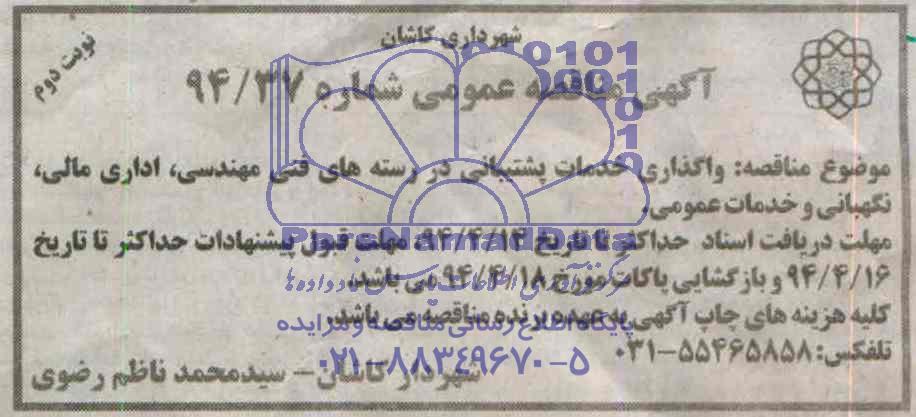 شهرداری کاشان
نوبت دوم
آگهی مناقصه عمومی شماره ۹۴/۳۷
موضوع مناقصه: واگذاری خدمات پشتیبانی در رسته های فنی مهندسی، اداری مالی،
نگهبانی و خدمات عمومی.
مهلت دریافت اسناد حداکثر تا تاریخ ۹۴/۴/۱۴، مهلت قبول پیشنهادات حداکثر تا تاریخ
۹۴/۴/۱۶ و بازگشایی پاکات مورخ ۹۴/۴/۱۸ می باشد.
کلیه هزینه های چاپ آگهی به عهده برنده مناقصه می باشد.
تلفکس: ۵۵۴۶۵۸۵۸-۰۳۱
شهردار کاشان – سیدمحمد ناظم رضوی
ParsNamadData
پایگاه اطلاع رسانی مناقصه و مزایده
۰۲۱-۸۸۳۴۹۶۷۰-۵